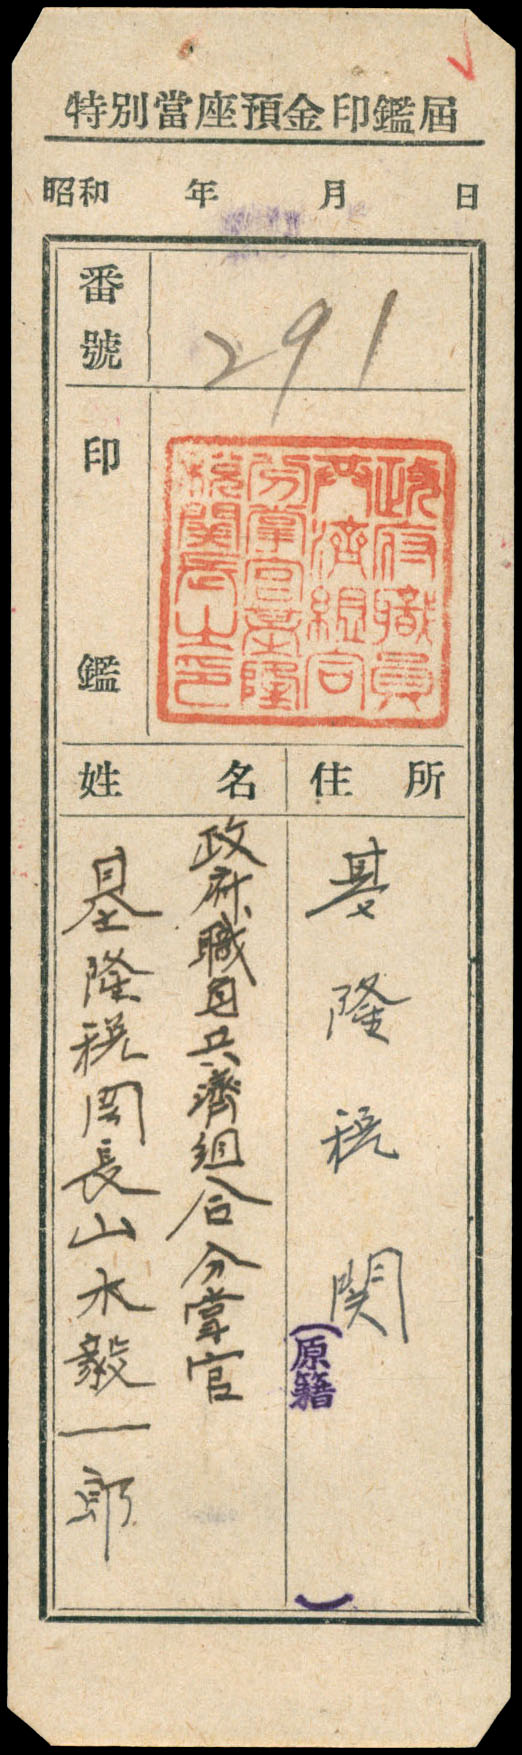 特別當座預金印鑑屆
昭和 年 月 日
番號
291
印鑑
政府職員
共濟組合
分掌官基隆
税関長之印
住所
基隆税関
(原籍 )
姓名
政府職員共濟組合分掌官
基隆税関長山水毅一郎